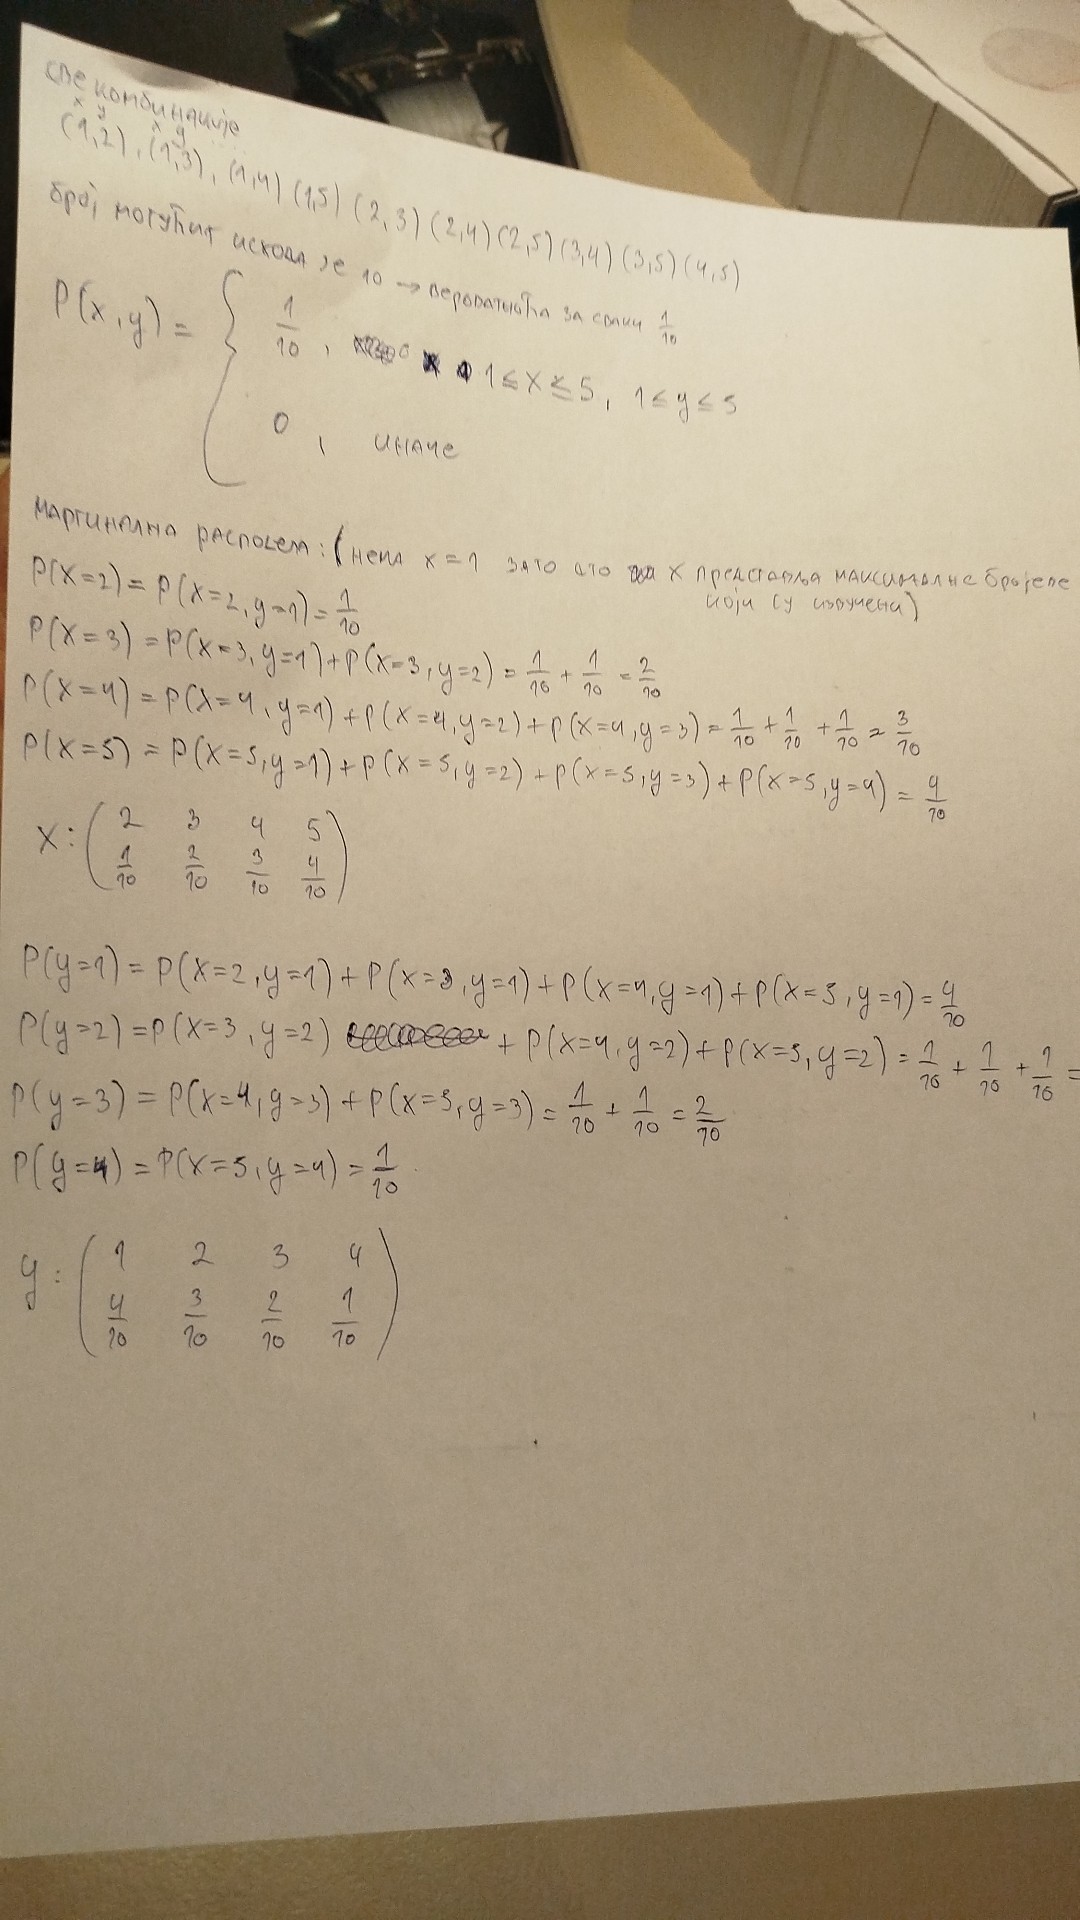 све комбинације
x y x y
(1,2), (1,3), (1,4) (1,5) (2,3) (2,4) (2,5) (3,4) (3,5) (4,5)
број могућих исхода је 10 → вероватноћа за сваки 1/10
P(x,y) = { 1/10, 1 ≤ x ≤ 5, 1 ≤ y ≤ 5
0, иначе
маргинална расподела: (нема x=1 зато што x представља максималне бројеве
који су извучени)
P(X=2) = P(X=2, y=1) = 1/10
P(X=3) = P(X=3, y=1) + P(X=3, y=2) = 1/10 + 1/10 = 2/10
P(X=4) = P(X=4, y=1) + P(X=4, y=2) + P(X=4, y=3) = 1/10 + 1/10 + 1/10 = 3/10
P(X=5) = P(X=5, y=1) + P(X=5, y=2) + P(X=5, y=3) + P(X=5, y=4) = 4/10
X: ( 2 3 4 5
1/10 2/10 3/10 4/10 )
P(y=1) = P(X=2, y=1) + P(X=3, y=1) + P(X=4, y=1) + P(X=5, y=1) = 4/10
P(y=2) = P(X=3, y=2) + P(X=4, y=2) + P(X=5, y=2) = 1/10 + 1/10 + 1/10 =
P(y=3) = P(X=4, y=3) + P(X=5, y=3) = 1/10 + 1/10 = 2/10
P(y=4) = P(X=5, y=4) = 1/10
y: ( 1 2 3 4
4/10 3/10 2/10 1/10 )